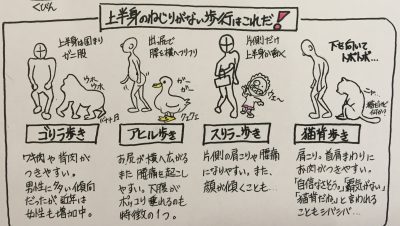 くびれ
上半身のねじりがない歩行はこれだ!
上半身は固まり
ガニ股
ウホ
ウホ
出っ尻で
腰を横へフリフリ
ガー
ガー
クェクェ
片側だけ
上半身が動く
ウェ〜
下を向いて
トボトボ…
ゴリラ歩き
アヒル歩き
スリラー歩き
猫背歩き
ワキ肉や背肉が
つきやすい。
男性に多い傾向
だったが近年は
女性も増加中。
お尻が横へ広がる
また腰痛を起こし
やすい。下腹が
ポッコリ垂れるのも
特徴の1つ。
片側の肩こりや腰痛
になりやすい。また、
顔が傾くことも…
肩こり。首肩まわりに
お肉がつきやすい。
「自信なさそう」「覇気がない」
「猫背だね」と言われる
こともシバシバ…